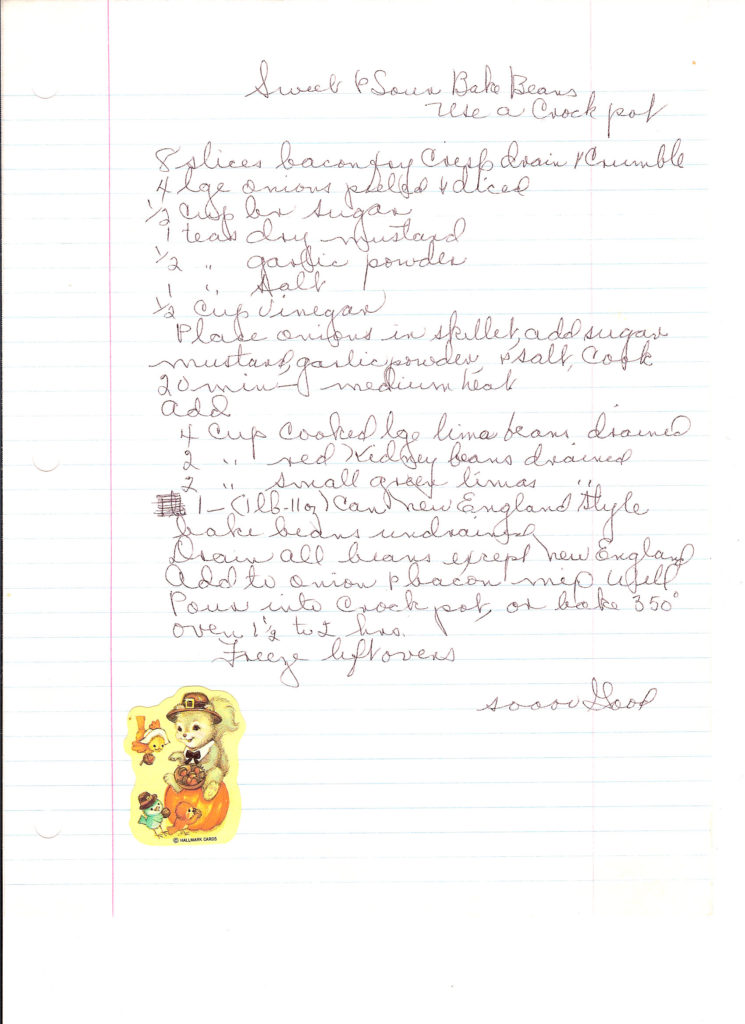 Sweet & Sour Bake Beans
Use a Crock pot
8 slices bacon fry Crisp drain & Crumble
4 lge onions peeled & diced
1/2 Cup br sugar
1 teas dry mustard
1/2 " garlic powder
1 " salt
1/2 Cup Vinegar
Place onions in skillet, add sugar
mustard, garlic powder, & salt, Cook
20 min - medium heat
add
4 Cup Cooked lge lima beans drained
2 " red Kidney beans drained
2 " small green limas "
1 - (1 lb - 11 oz) Can new England Style
bake beans undrained
Drain all beans except new England
Add to onion & bacon mix Well
Pour into Crock pot, or bake 350°
oven 1 1/2 to 2 hrs.
Freeze leftovers
soooo Good
© HALLMARK CARDS